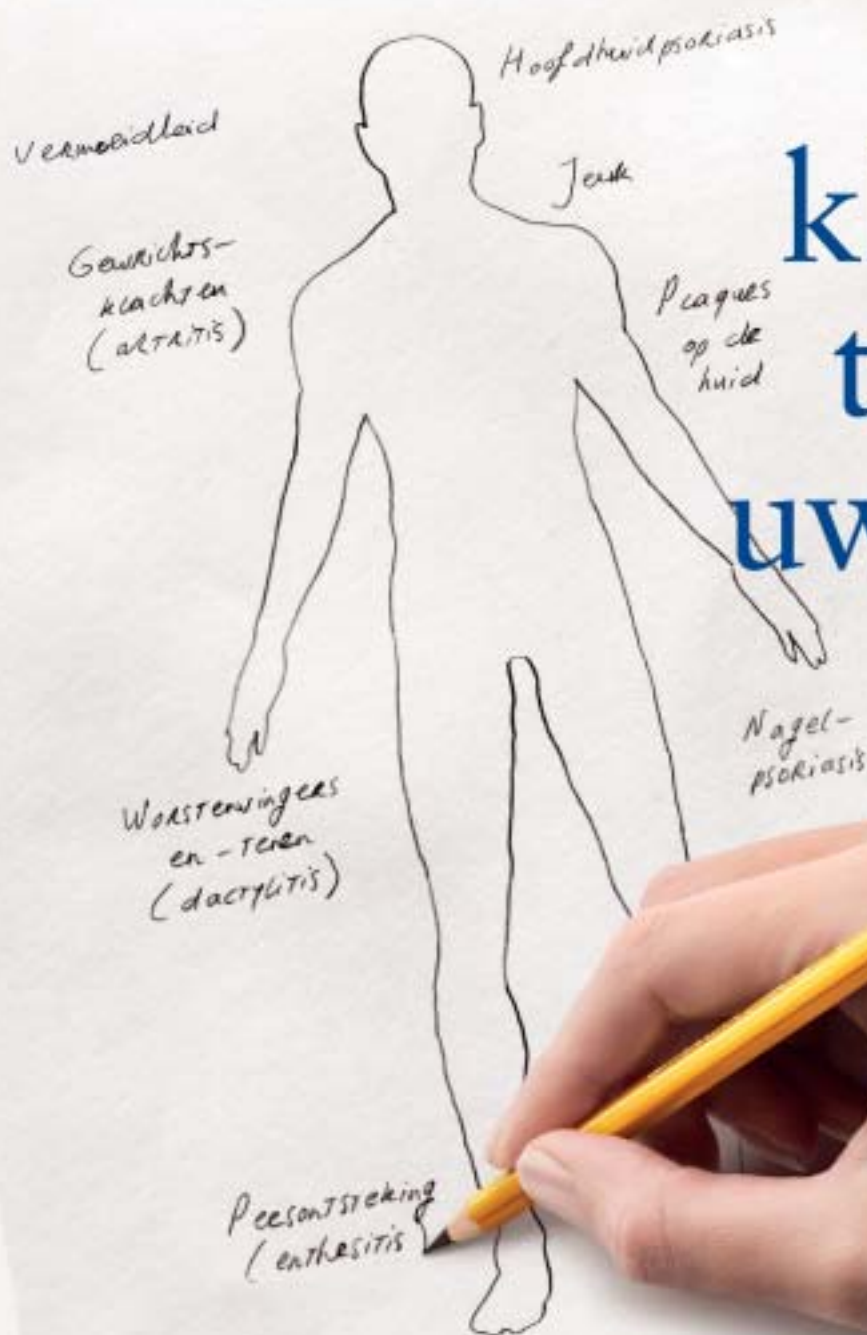 Hoofdhuidpsoriasis
Vermoeidheid
Jeuk
Gewrichts-
klachten
(artritis)
Plaques
op de
huid
k
t
uw
Nagel-
psoriasis
Worstenvingers
en -tenen
(dactylitis)
Peesontsteking
(enthesitis